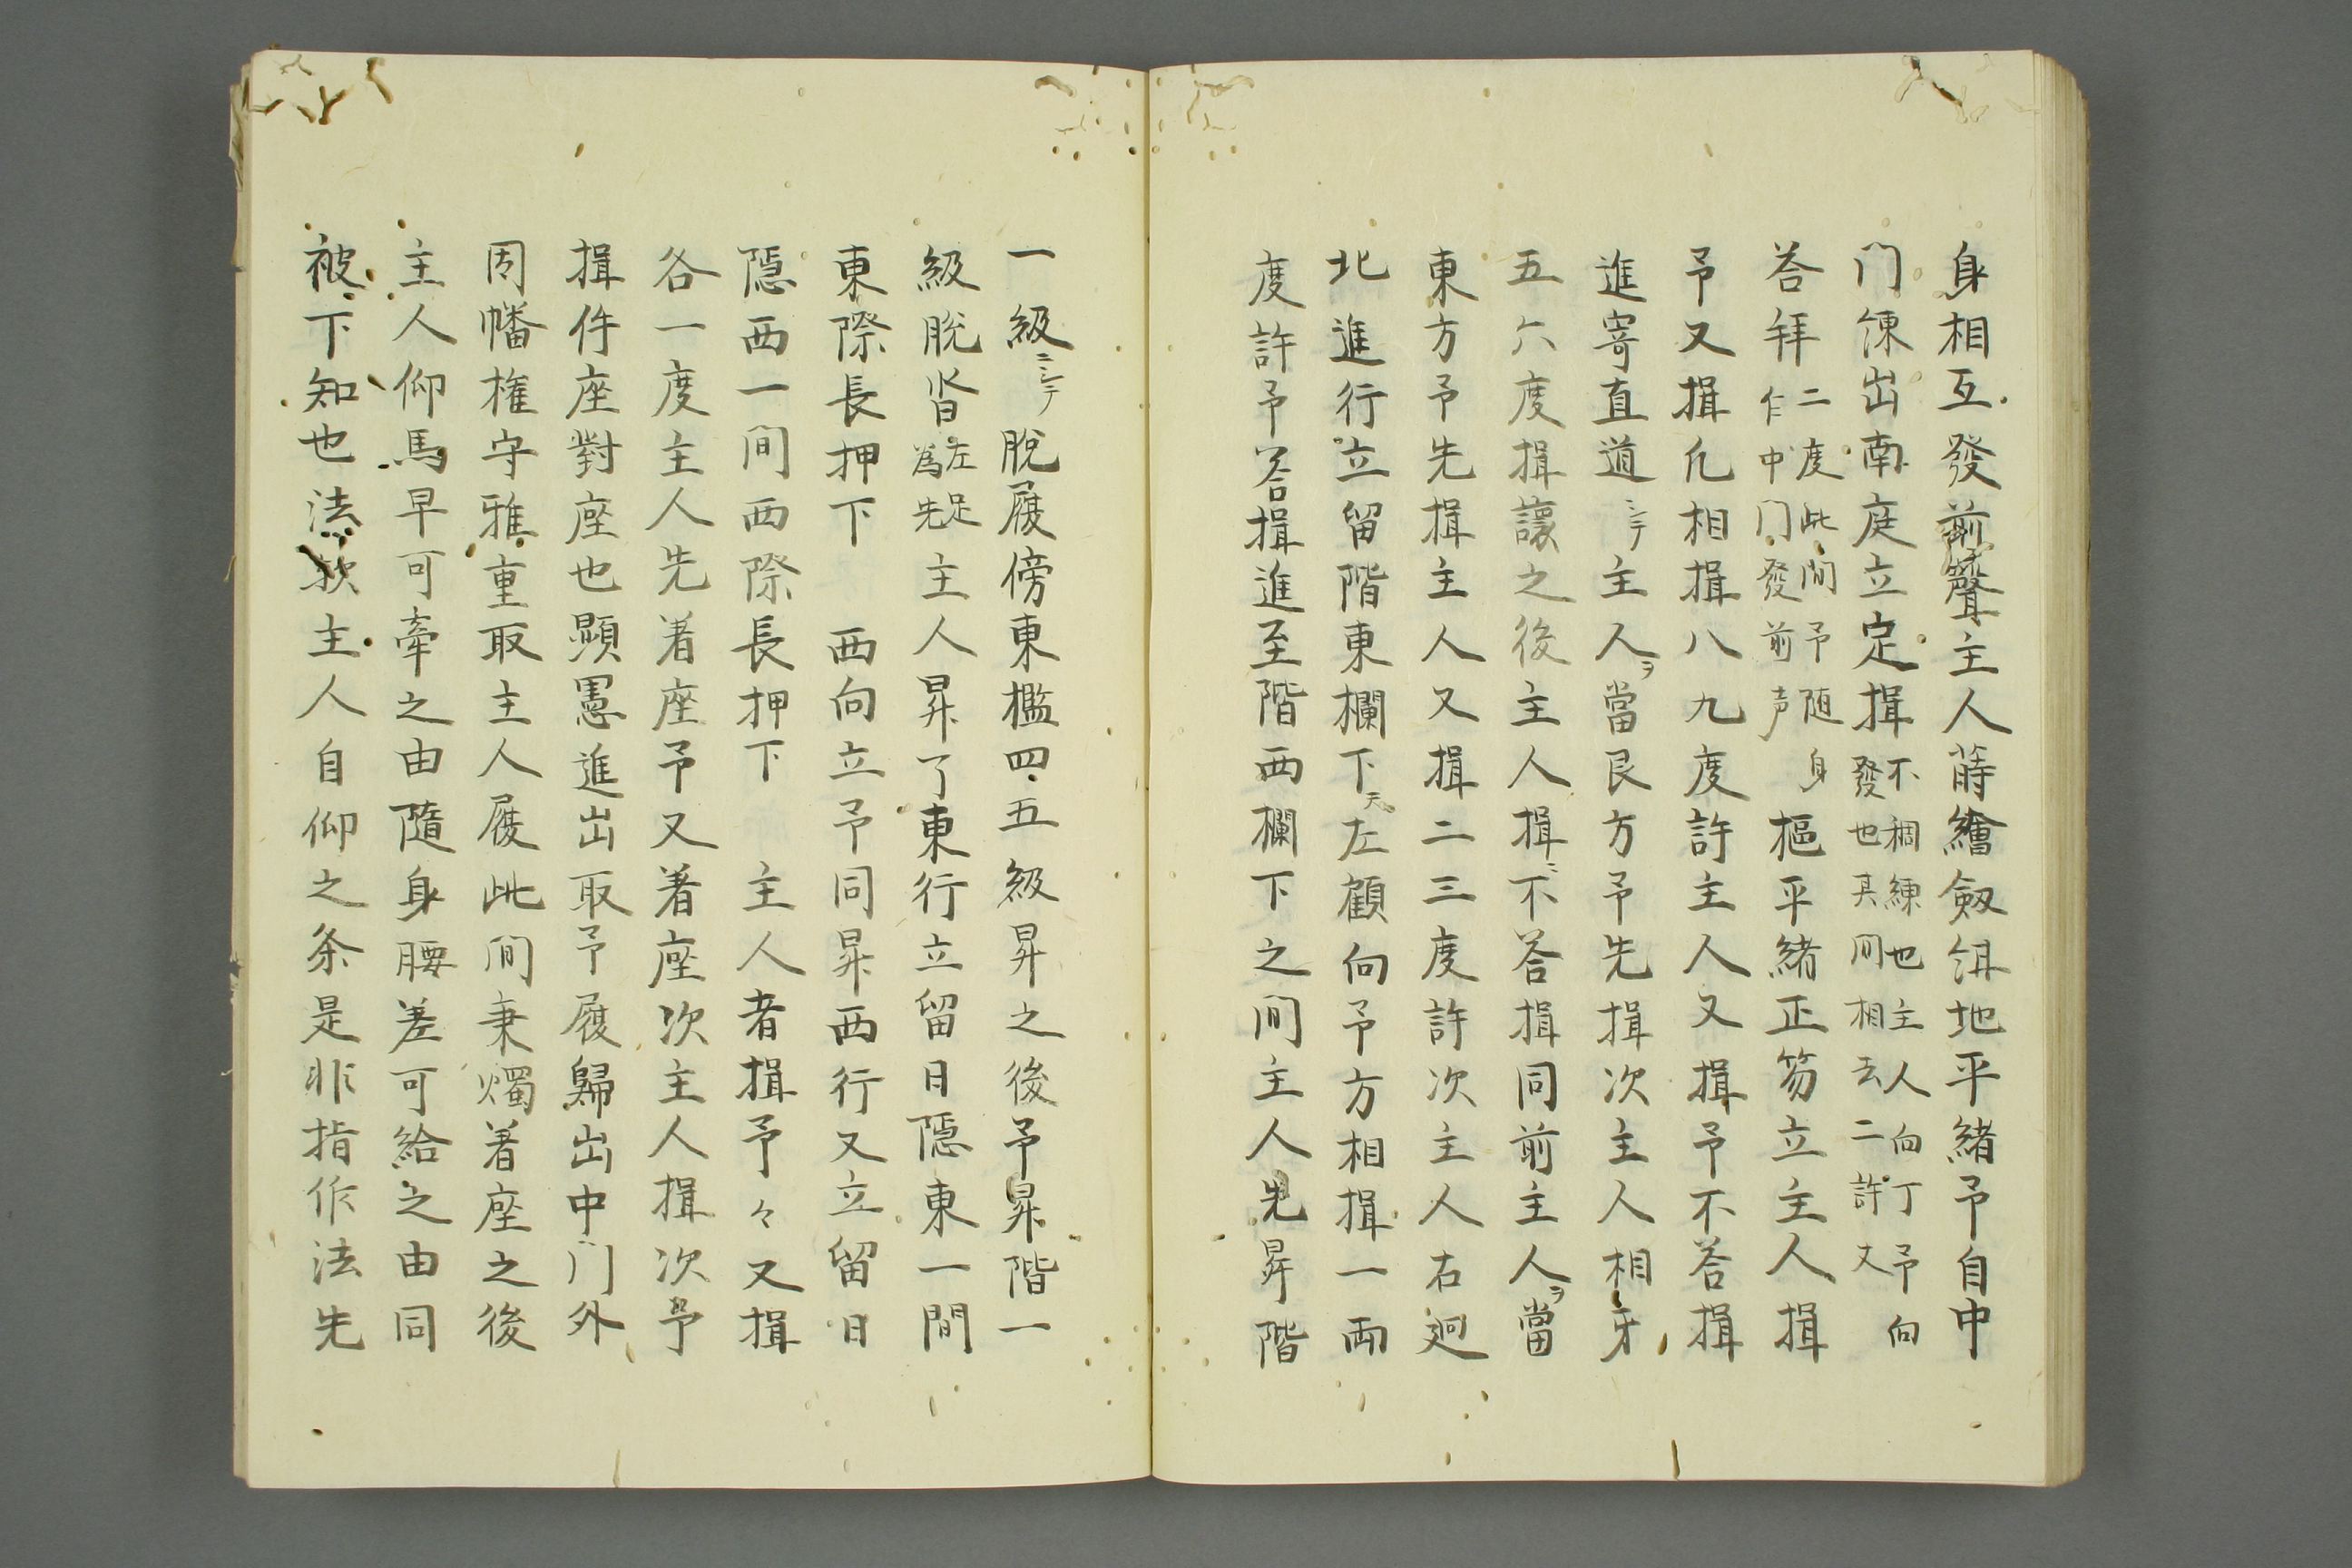 身相互發前聲主人蒔繪劔𫃠地平緒予自中
门練出南庭立定揖不稠練也主人向丁予向發也其間相去二許丈
荅拜二度此间予随身仁中门發前声樞平緒正笏立主人揖
予又揖凢相揖八九度許主人又揖予不荅揖
進寄直道ニテ主人ヲ當艮方予先揖次主人相牙
五六度揖讓之後主人揖ニ不荅揖同前主人ヲ當
東方予先揖主人又揖二三度許次主人右廻
北進行立留階東欄下天左顧向予方相揖一両
度許予荅揖進至階西欄下之间主人先昇階
一級ニテ脫履傍東檻四五級昇之後予昇階一
級脫沓左足為先主人昇了東行立留日隱東一間
東際長押下　西向立予同昇西行又立留日
隱西一间西際長押下　主人者揖予々又揖
各一度主人先着座予又着座次主人揖次予
揖件座對座也顕憲進出取予履歸出中门外
周幡権守雅重取主人履此间秉燭着座之後
主人仰馬早可牽之由隨身腰差可給之由同
被下知也法欤主人自仰之条是非指作法先